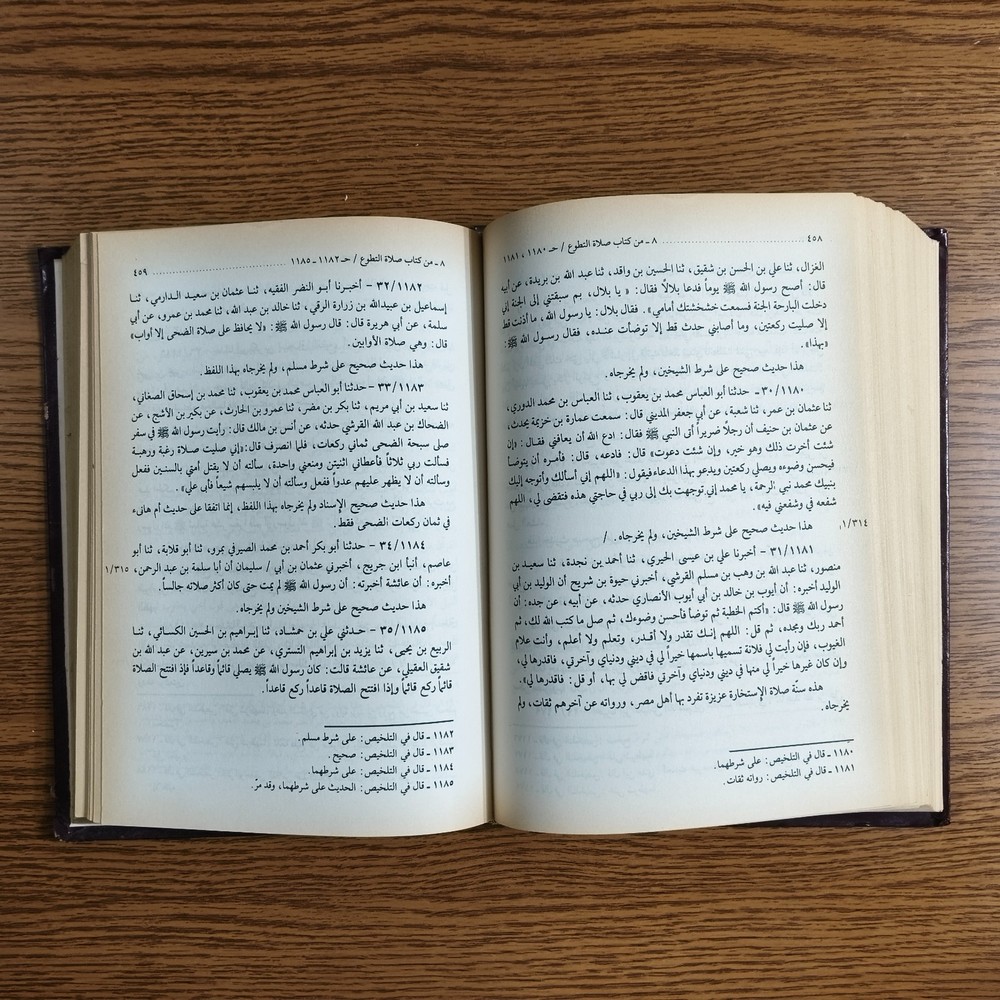 ٤٥٨ ........ ٨ ـ من كتاب صلاة التطوع / حـ ١١٨٠ ، ١١٨١
الغزال، ثنا علي بن الحسن بن شقيق، ثنا الحسين بن واقد، ثنا عبد الله بن بريدة، عن أبيه
قال: أصبح رسول الله ﷺ يوماً فدعا بلالاً فقال: « يا بلال، بم سبقتني إلى الجنة إني
دخلت البارحة الجنة فسمعت خشخشتك أمامي». فقال بلال: يا رسول الله، ما أذنت قط
إلا صليت ركعتين، وما أصابني حدث قط إلا توضأت عنده، فقال رسول الله ﷺ:
«بهذا».
هذا حديث صحيح على شرط الشيخين، ولم يخرجاه.
٣٠/١١٨٠ – حدثنا أبو العباس محمد بن يعقوب، ثنا العباس بن محمد الدوري،
ثنا عثمان بن عمر، ثنا شعبة، عن أبي جعفر المديني قال: سمعت عمارة بن خزيمة يحدث،
عن عثمان بن حنيف أن رجلاً ضريراً أتى النبي ﷺ فقال: ادع الله أن يعافني فقال: «إن
شئت أخرت ذلك وهو خير، وإن شئت دعوت» قال: فادعه، قال: فأمره أن يتوضأ
فيحسن وضوءه ويصلي ركعتين ويدعو بهذا الدعاء فيقول: «اللهم إني أسألك وأتوجه إليك
بنبيك محمد نبي الرحمة، يا محمد إني توجهت بك إلى ربي في حاجتي هذه فتقضى لي، اللهم
شفعه في وشفعني فيه».
١/٣١٤، هذا حديث صحيح على شرط الشيخين، ولم يخرجاه. /
٣١/١١٨١ – أخبرنا علي بن عيسى الحيري، ثنا أحمد بن نجدة، ثنا سعيد بن
منصور، ثنا عبد الله بن وهب بن مسلم القرشي، أخبرني حيوة بن شريح أن الوليد بن أبي
الوليد أخبره: أن أيوب بن خالد بن أبي أيوب الأنصاري حدثه، عن أبيه، عن جده: أن
رسول الله ﷺ قال: «أكتم الخطبة ثم توضأ فأحسن وضوءك، ثم صل ما كتب الله لك، ثم
أحمد ربك ومجده، ثم قل: اللهم إنك تقدر ولا أقدر، وتعلم ولا أعلم، وأنت علام
الغيوب، فإن رأيت لي فلانة تسميها باسمها خيراً لي في ديني ودنياي وآخرتي، فاقدرها لي،
وإن كان غيرها خيراً لي منها في ديني ودنياي وآخرتي فاقض لي بها، أو قل: فاقدرها لي».
هذه سنّة صلاة الإستخارة عزيزة تفرد بها أهل مصر، ورواته عن آخرهم ثقات، ولم
يخرجاه.
١١٨٠ ـ قال في التلخيص: على شرطهما.
١١٨١ ـ قال في التلخيص: رواته ثقات.
٨ ـ من كتاب صلاة التطوع / حـ ١١٨٢ ـ ١١٨٥ ........ ٤٥٩
٣٢/١١٨٢ – أخبرنا أبو النضر الفقيه، ثنا عثمان بن سعيد الدارمي، ثنا
إسماعيل بن عبيدالله بن زرارة الرقي، ثنا خالد بن عبد الله، ثنا محمد بن عمرو، عن أبي
سلمة، عن أبي هريرة قال: قال رسول الله ﷺ: «لا يحافظ على صلاة الضحى إلا أواب»
قال: وهي صلاة الأوابين.
هذا حديث صحيح على شرط مسلم، ولم يخرجاه بهذا اللفظ.
٣٣/١١٨٣ – حدثنا أبو العباس محمد بن يعقوب، ثنا محمد بن إسحاق الصغاني،
ثنا سعيد بن أبي مريم، ثنا بكر بن مضر، ثنا عمرو بن الحارث، عن بكير بن الأشج، عن
الضحاك بن عبد الله القرشي حدثه، عن أنس بن مالك قال: رأيت رسول الله ﷺ في سفر
صلى سبحة الضحى ثماني ركعات، فلما انصرف قال: «إني صليت صلاة رغبة ورهبة
فسألت ربي ثلاثاً فأعطاني اثنتين ومنعني واحدة، سألته أن لا يقتل أمتي بالسنين ففعل
وسألته أن لا يظهر عليهم عدواً ففعل وسألته أن لا يلبسهم شيعاً فأبى علي».
هذا حديث صحيح الإسناد ولم يخرجاه بهذا اللفظ، إنما اتفقا على حديث أم هانىء
في ثمان ركعات الضحى فقط.
٣٤/١١٨٤ – حدثنا أبو بكر أحمد بن محمد الصيرفي بمرو، ثنا أبو قلابة، ثنا أبو
عاصم، أنبأ ابن جريج، أخبرني عثمان بن أبي / سليمان أن أبا سلمة بن عبد الرحمن، ١/٣١٥
أخبره: أن عائشة أخبرته: أن رسول الله ﷺ لم يمت حتى كان أكثر صلاته جالساً.
هذا حديث صحيح على شرط الشيخين ولم يخرجاه.
٣٥/١١٨٥ – حدثني علي بن حمشاد، ثنا إبراهيم بن الحسين الكسائي، ثنا
الربيع بن يحيى، ثنا يزيد بن إبراهيم التستري، عن محمد بن سيرين، عن عبد الله بن
شقيق العقيلي، عن عائشة قالت: كان رسول الله ﷺ يصلي قائماً وقاعداً فإذا افتتح الصلاة
قائماً ركع قائماً وإذا افتتح الصلاة قاعداً ركع قاعداً.
١١٨٢ ـ قال في التلخيص: على شرط مسلم.
١١٨٣ ـ قال في التلخيص: صحيح.
١١٨٤ ـ قال في التلخيص: على شرطهما.
١١٨٥ ـ قال في التلخيص: الحديث على شرطهما، وقد مرّ.